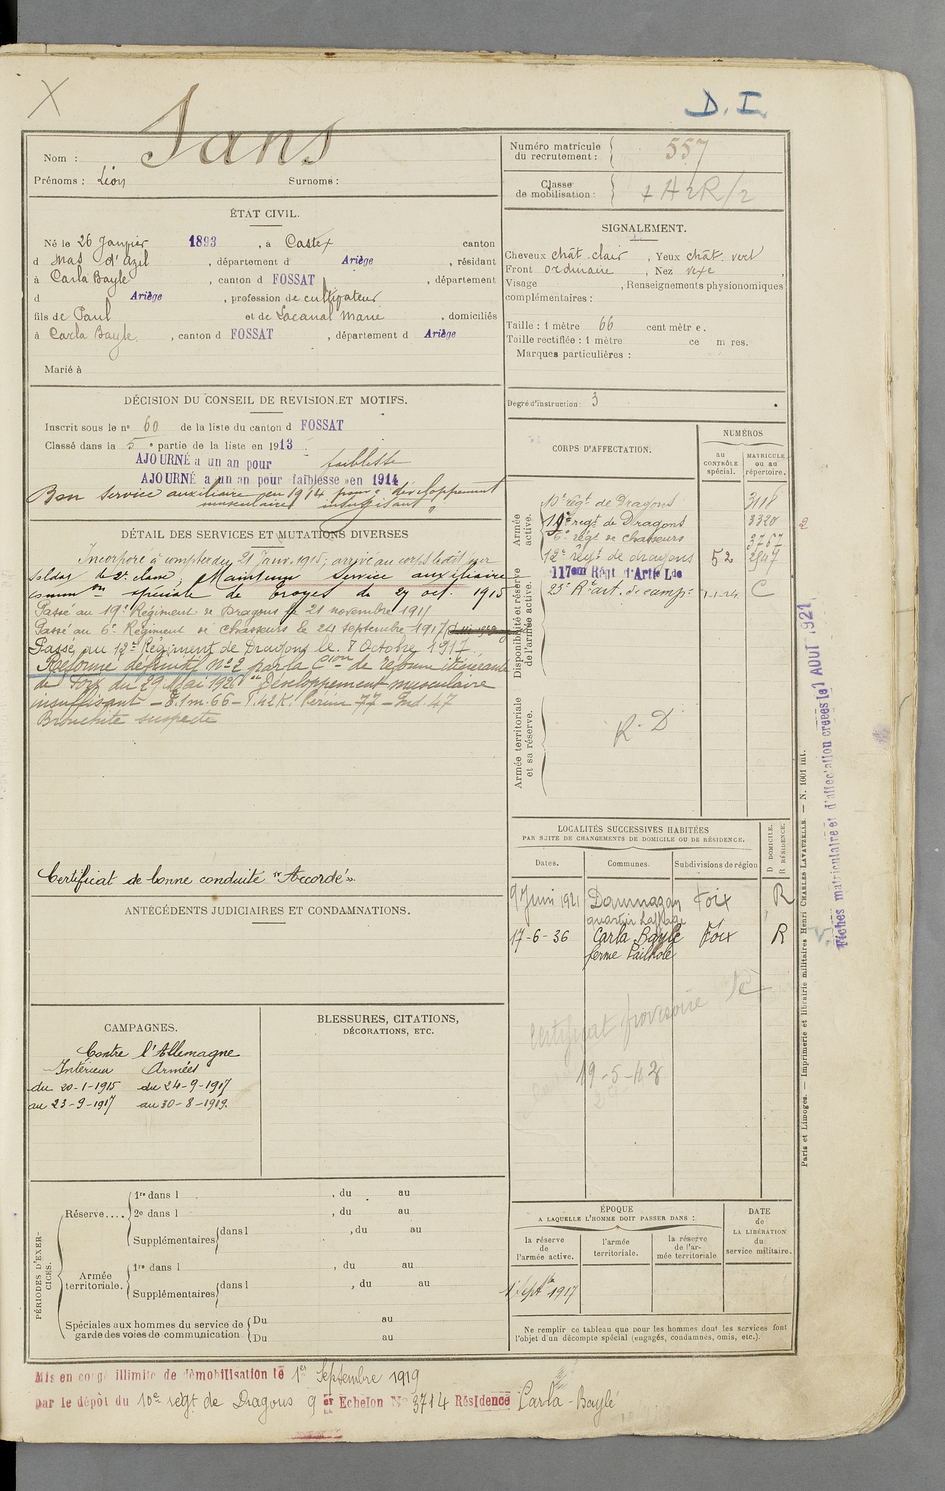 X
D. I.
Nom : Sans
Prénoms : Léon Surnoms :
Numéro matricule du recrutement : 557
Classe de mobilisation :
ÉTAT CIVIL.
Né le 26 Janvier 1893, à Castex canton
d Mas d'azil, département d Ariège, résidant
à Carla Bayle, canton d FOSSAT, département
d Ariège, profession de cultivateur
fils de Paul et de Lacanal Marie, domiciliés
à Carla Bayle, canton d FOSSAT, département d Ariège
Marié à
SIGNALEMENT.
Cheveux chât. clair, Yeux chât. vert
Front ordinaire, Nez vexe,
Visage , Renseignements physionomiques
complémentaires :
Taille : 1 mètre 66 centimètre.
Taille rectifiée : 1 mètre ce m res.
Marques particulières :
Degré d'instruction : 3
DÉCISION DU CONSEIL DE REVISION ET MOTIFS.
Inscrit sous le n° 60 de la liste du canton d FOSSAT
Classé dans la 5e partie de la liste en 1913
AJOURNÉ a un an pour faiblesse
AJOURNÉ a un an pour faiblesse en 1914
Bon service auxiliaire en 1914 pour "développement
musculaire insuffisant"
DÉTAIL DES SERVICES ET MUTATIONS DIVERSES
Incorporé à compter du 21 Janv. 1915, arrivé au corps ledit jour
soldat de 2e classe, Maintenu service auxiliaire
comm on spéciale de Troyes du 27 oct. 1915
Passé au 19e Régiment de Dragons le 21 novembre 191
Passé au 6e Régiment de Chasseurs le 24 septembre 1917
Passé au 12e Régiment de Dragons le 8 Octobre 1917
Réformé définitif No 2 par la Cion de réforme itinérante
de Foix du 29 Mai 192 "Développement musculaire
insuffisant – T. 1m.66 – P. 42K. Périm 77 – Ind. 47
Bronchite suspecte
Certificat de bonne conduite "Accordé".
CORPS D'AFFECTATION.
NUMÉROS
au CONTRÔLE spécial.
MATRICULE ou au répertoire.
Armée active.
10e régt de Dragons 3118
19e régt de Dragons 3320
6e régt de chasseurs 3757
12e régt de dragons 52 2947
Disponibilité et réserve de l'armée active.
117eme Régt d'Artie Lde
23e R. art. de campe 1.1.24 C
Armée territoriale et sa réserve.
R. D
Fiches matriculaire et d'affectation creées le 1 AOUT 1921
LOCALITÉS SUCCESSIVES HABITÉES
PAR SUITE DE CHANGEMENTS DE DOMICILE OU DE RÉSIDENCE.
Dates. Communes. Subdivisions de région D DOMICILE. R RÉSIDENCE.
9 Juin 1921 Daumazan Foix R
quartier
17-6-36 Carla Bayle Foix R
ferme
Certificat provisoire
19-5-42
ANTÉCÉDENTS JUDICIAIRES ET CONDAMNATIONS.
CAMPAGNES.
Contre l'Allemagne
Intérieur Armées
du 20-1-1915 du 24-9-1917
au 23-9-1917 au 30-8-1919.
BLESSURES, CITATIONS,
DÉCORATIONS, ETC.
PÉRIODES D'EXERCICES.
Réserve....
1re dans l , du au
2e dans l , du au
Supplémentaires dans l , du au
Armée territoriale.
1re dans l , du au
Supplémentaires dans l , du au
Spéciales aux hommes du service de
garde des voies de communication
Du au
Du au
ÉPOQUE
A LAQUELLE L'HOMME DOIT PASSER DANS :
DATE de LA LIBÉRATION du service militaire.
la réserve de l'armée active.
l'armée territoriale.
la réserve de l'armée territoriale
1 Septbre 1917
Ne remplir ce tableau que pour les hommes dont les services font
l'objet d'un décompte spécial (engagés, condamnés, omis, etc.).
Paris et Limoges. — Imprimerie et librairie militaires Henri CHARLES-LAVAUZELLE. — N. 1601 int.
Mis en congé illimité de démobilisation le 1er Septembre 1919
par le dépôt du 10e régt de Dragons 9 Echelon No 3714 Résidence Carla-Bayle